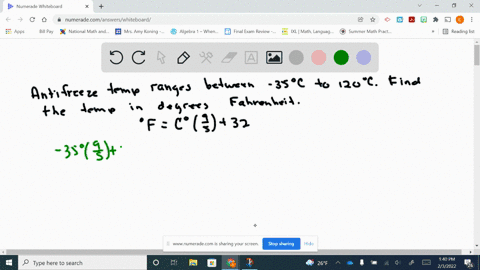 Numerade Whiteboard
numerade.com/answers/whiteboard/
Apps
Bill Pay
National Math and ...
Mrs. Amy Koning -...
Algebra 1 – Wism...
Final Exam Review -...
IXL | Math, Languag...
Summer Math Pract...
Reading list
Antifreeze temp ranges between -35°C to 120°C. Find
the temp in degrees Fahrenheit.
°F = C°(9/5) + 32
-35°(9/5)+
www.numerade.com is sharing your screen.
Stop sharing
Hide
Type here to search
26°F
1:40 PM
2/3/2022